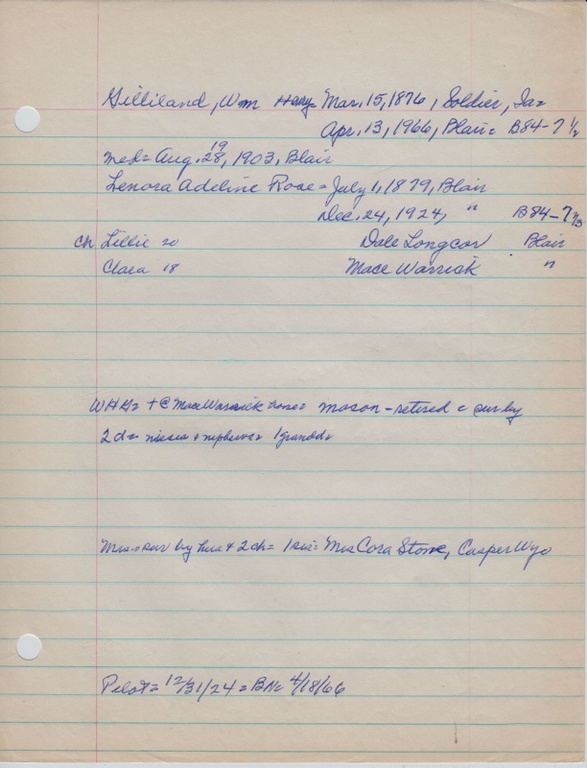 Gilliland, Wm Harry= Mar. 15, 1876, Soldier, Ia=
Apr. 13, 1966, Blair= B84-7 1/2
med= Aug. 28, 1903, Blair
19
Lenora Adeline Rose= July 1, 1879, Blair
Dec. 24, 1924, " B84-7 1/3
Ch Lillie 20 Dale Longcor Blair
Clara 18 Mace Warrick "
WHG= + @ Mace Warrick home= mason-retired = sur by
2 d= nieces + nephews= 1 grandd=
Mrs= sur by hus + 2 ch= 1 sis= Mrs Cora Stone, Casper Wyo
Pilot= 12/31/24 = BN= 4/18/66